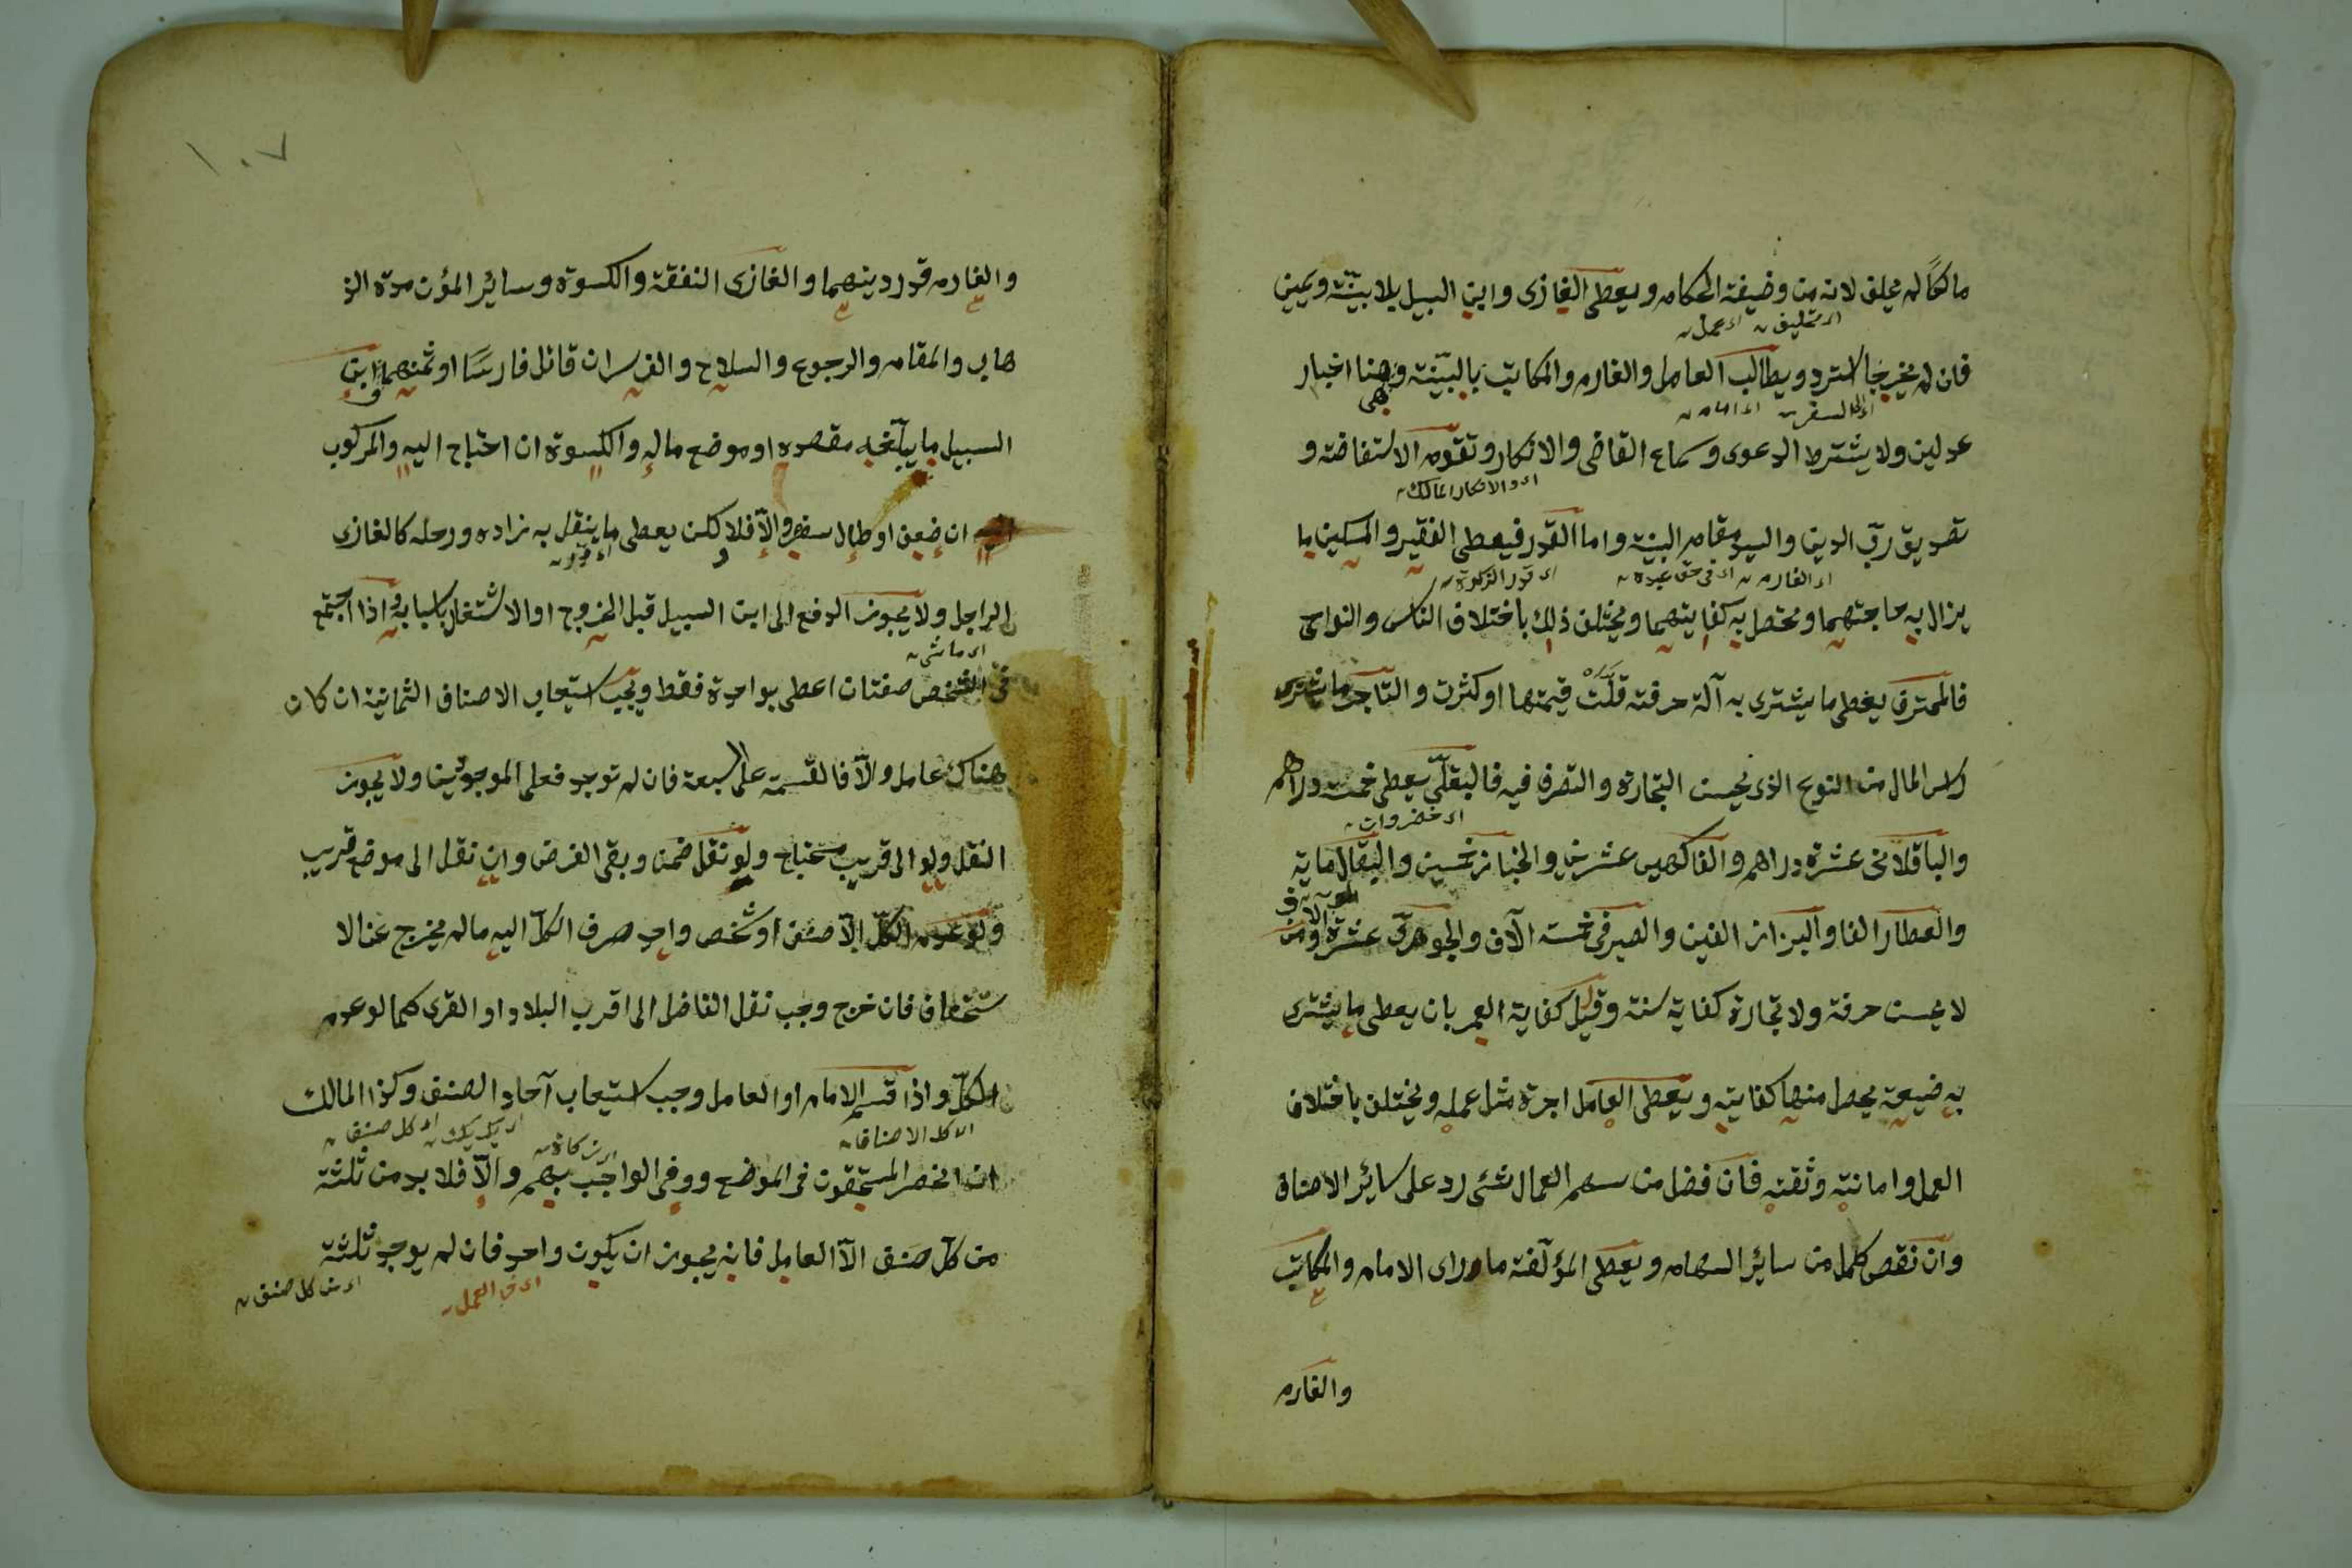 مالكا لم يحلف لانه من وضيفة الحكام ويعطى الغازى وابن السبيل بلا بينة ويمين
اى تحليف اى عمل
فان لم يخرجا استرد ويطالب العامل والغارم والمكاتب بالبينة وهى هنا اخبار
اى الى السفر
عدلين ولا يشترط الدعوى وسماع القاضى والانكار وتقوم الاستفاضة و
اى والانكار المالك
تصديق رب الدين والسيد مقام البينة واما القدر فيعطى الفقير والمسكين ما
اى الغارم اى فى حق عبده اى قدر الزكوة
يزال به حاجتهما ويحصل به كفايتهما ويختلف ذلك باختلاف الناس والنواحى
فالمحترف يعطى ما يشترى به آلة حرفته قلت قيمتها او كثرت والتاجر ما يشترى
راس المال من النوع الذى يحسن التجارة والتصرف فيه فالبقلى يعطى خمسة دراهم
اى خضروات
والباقلانى عشرة دراهم والفاكهى عشرين والخباز خمسين والبقال ماية
والعطار الفا والبزاز الفين والصيرفى خمسة آلاف والجوهرى عشرة الاف ومن
لا يحسن حرفة ولا تجارة كفاية سنة وقيل كفاية العمر بان يعطى ما يشترى
به ضيعة يحصل منها كفايته ويعطى العامل اجرة مثل عمله ويختلف باختلاف
العمل وامانته وثقته فان فضل من سهم العمال شئ رد على ساير الاصناف
وان نقص كمل من ساير السهام ويعطى المؤلفة ما وراى الامام والمكاتب
والغارم
١٠٧
والغارم قدر دينهما والغازى النفقة والكسوة وساير المؤن مدة الذ
هاب والمقام والرجوع والسلاح والفرس ان قاتل فارسا او ثمنهما وابن
السبيل ما يبلغه مقصده او موضع ماله والكسوة ان احتاج اليه والمركوب
ان ضعف او طال سفره والا فلا لكن يعطى ما ينقل به زاده ورحله كالغازى
اى قدر
الراجل ولا يجوز الدفع الى ابن السبيل قبل الخروج او الاشتغال باسبابه واذا اجتمع
اى ماشى
فى الشخص صفتان اعطى بواحدة فقط ويجب استيعاب الاصناف الثمانية ان كان
هناك عامل والا فالقسمة على السبعة فان لم توجد فعلى الموجودين ولا يجوز
النقل ولو الى قريب محتاج ولو نقل ضمن وبقى الفرض وان نقل الى موضع قريب
ولو عدم الكل الا صنف او شخص واحد صرف الكل اليه ما لم يخرج عن الا
ستحقاق فان خرج وجب نقل الفاضل الى اقرب البلاد او القرى كما لو عدم
الكل واذا قسم الامام او العامل وجب استيعاب آحاد الصنف وكذا المالك
اى كل الاصناف اى كل صنف
ان انحصر المستحقون فى الموضع ووفى الواجب بهم والا فلا بد من ثلثة
من كل صنف الا العامل فانه يجوز ان يكون واحد فان لم يوجد ثلثة
اى فى العمل اى من كل صنف